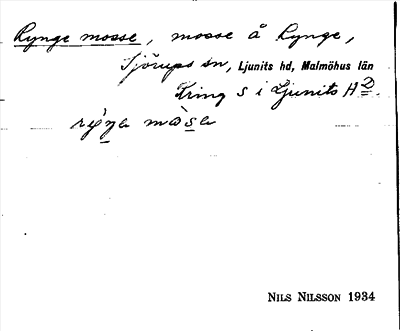 Rynge mosse, mosse å Rynge,
Sjörups sn, Ljunits hd, Malmöhus län
Kring S i Ljunits HD.
NILS NILSSON 1934